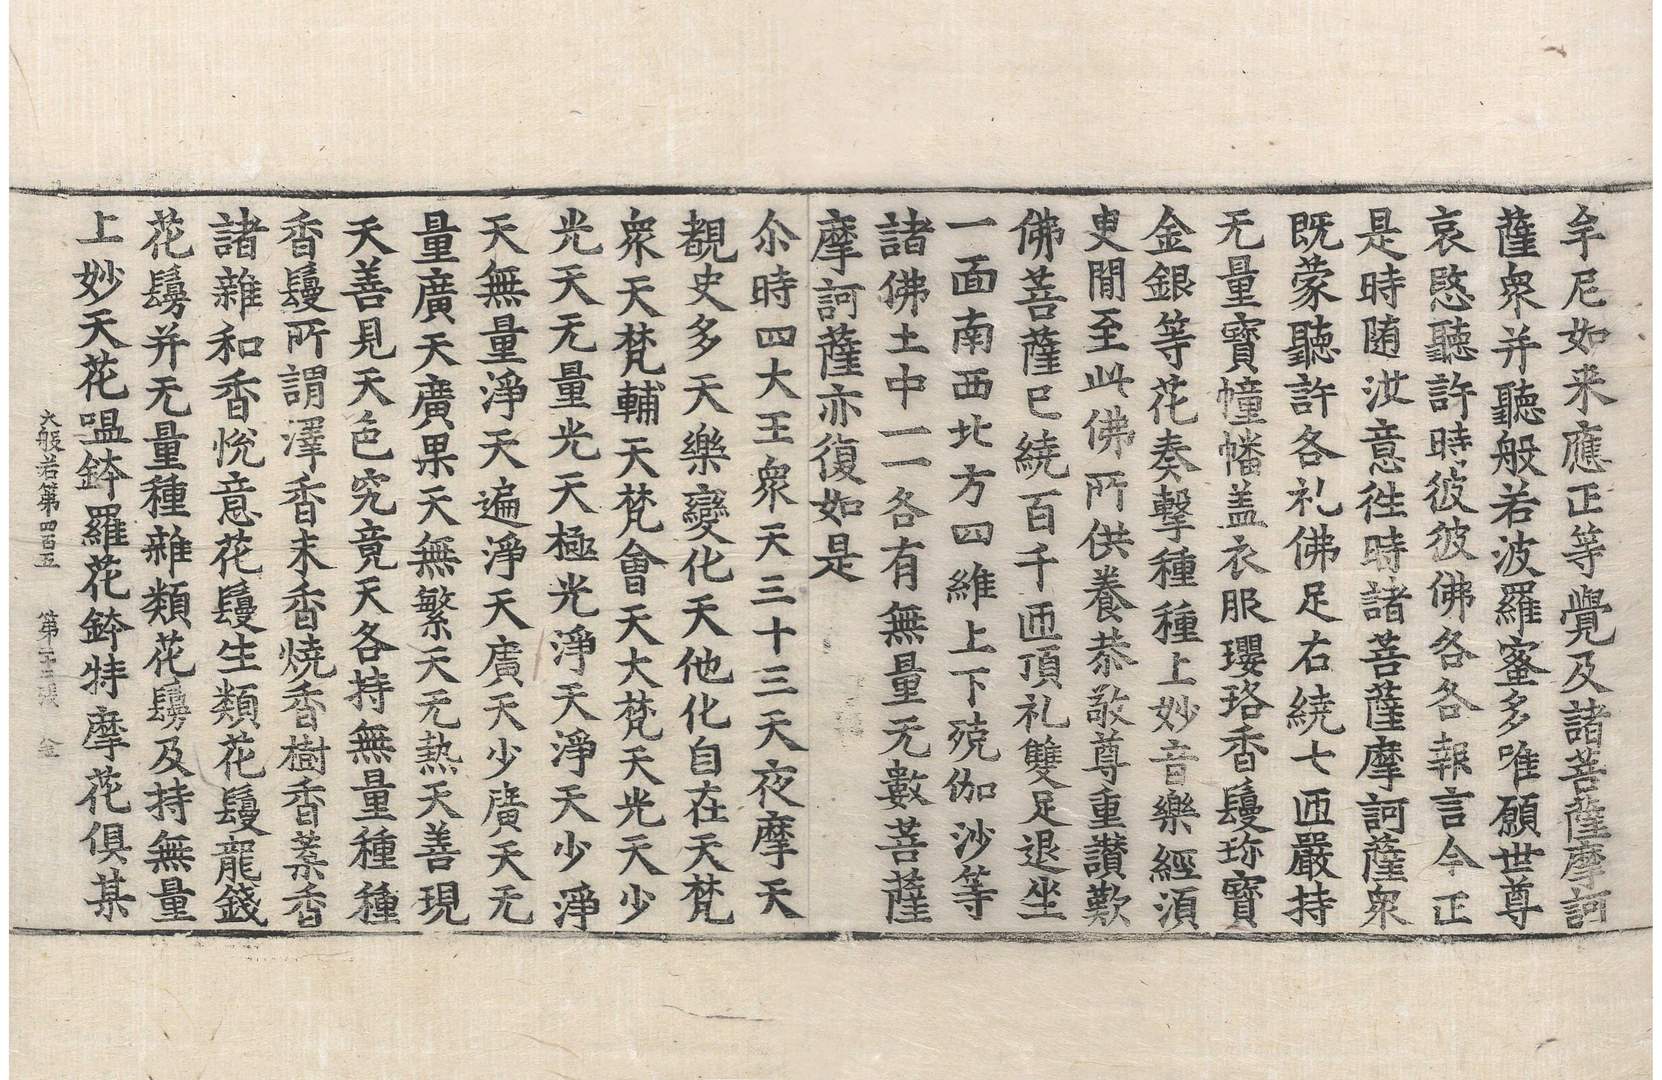 牟尼如来應正等覺及諸菩薩摩訶
薩衆并聽般若波羅蜜多唯願世尊
哀愍聽許時彼彼佛各各報言今正
是時随汝意徃時諸菩薩摩訶薩衆
既蒙聽許各礼佛足右繞七匝嚴持
无量寶幢幡盖衣服瓔珞香鬘珎寶
金銀等花奏擊種種上妙音樂經須
臾閒至此佛所供養恭敬尊重讃歎
佛菩薩已繞百千匝頂礼雙足退坐
一面南西北方四維上下殑伽沙等
諸佛土中一一各有無量无數菩薩
摩訶薩亦復如是
尒時四大王衆天三十三天夜摩天
覩史多天樂變化天他化自在天梵
衆天梵輔天梵會天大梵天光天少
光天无量光天極光淨天淨天少淨
天無量淨天遍淨天廣天少廣天无
量廣天廣果天無繁天无熱天善現
天善見天色究竟天各持無量種種
香鬘所謂澤香末香燒香樹香葉香
諸雜和香悅意花鬘生類花鬘龍錢
花鬘并无量種雜類花鬘及持無量
上妙天花嗢鉢羅花鉢特摩花俱某
大般若第四百五　第十三張　金